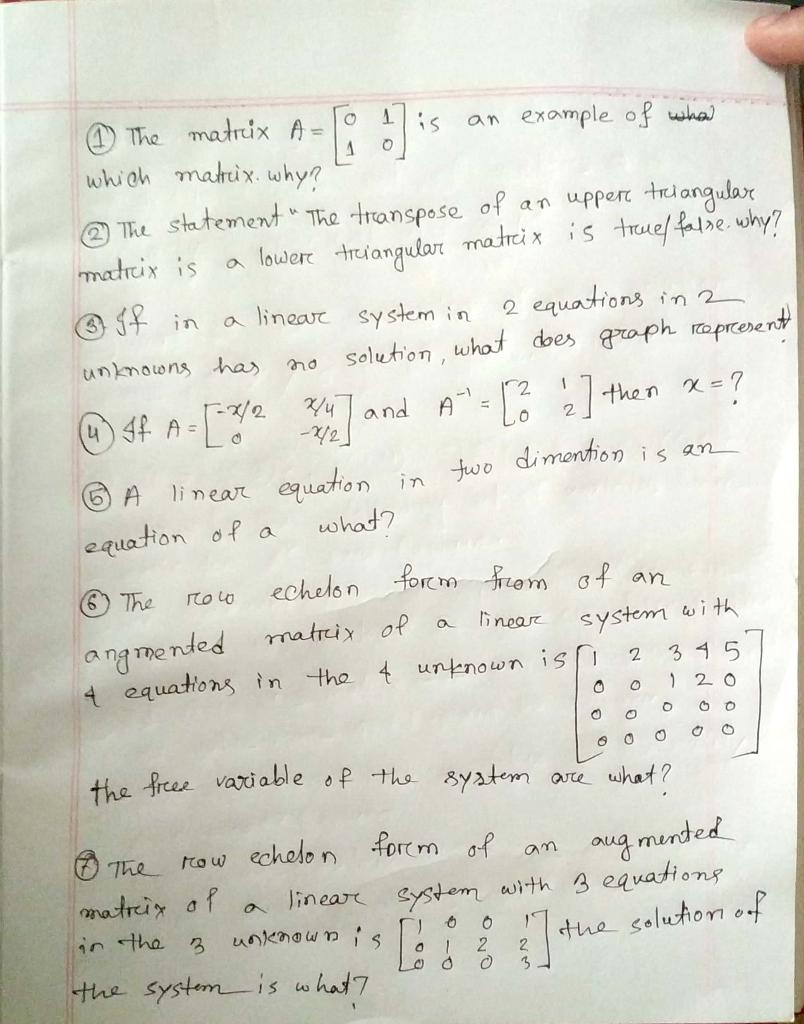 ① The matrix A = [0 1 1 0] is an example of wha
which matrix. why?
② The statement "The transpose of an upper triangular
matrix is a lower triangular matrix is true/false. why?
③ If in a linear system in 2 equations in 2
unknowns has no solution, what does graph represent?
④ If A = [-x/2 x/4 0 -x/2] and A⁻¹ = [2 1 0 2] then x = ?
⑤ A linear equation in two dimention is an
equation of a what?
⑥ The row echelon form from of an
angmented matrix of a linear system with
4 equations in the 4 unknown is [1 2 3 4 5
0 0 1 2 0
0 0 0 0 0
0 0 0 0 0]
the free variable of the system are what?
⑦ The row echelon form of an augmented
matrix of a linear system with 3 equations
in the 3 unknown is [1 0 0 1 0 1 2 2 0 0 0 3] the solution of
the system is what?